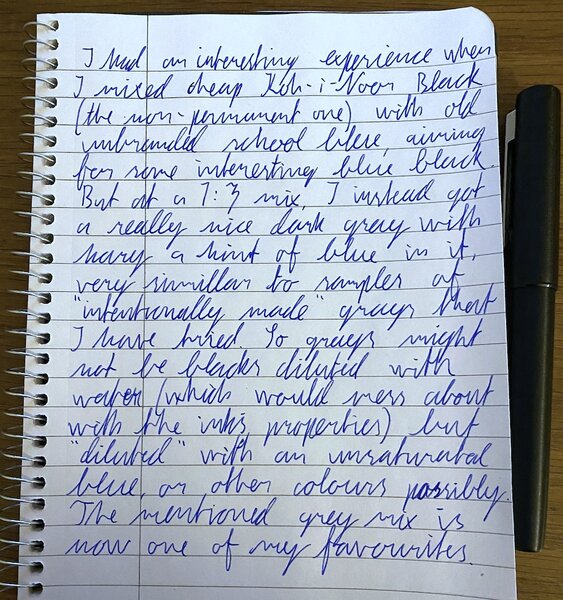 I had an interesting experience when
I mixed cheap Koh-i-Noor Black
(the non-permanent one) with old
unbranded school blue, aiming
for some interesting blue black.
But at a 7:3 mix, I instead got
a really nice dark gray with
hary a hint of blue in it,
very simillar to samples of
"intentionally made" grays that
I have tried. So grays might
not be blacks diluted with
water (which would mess about
with the ink's properties) but
"diluted" with an unsaturated
blue, or other colours possibly.
The mentioned grey mix is
now one of my favourites.